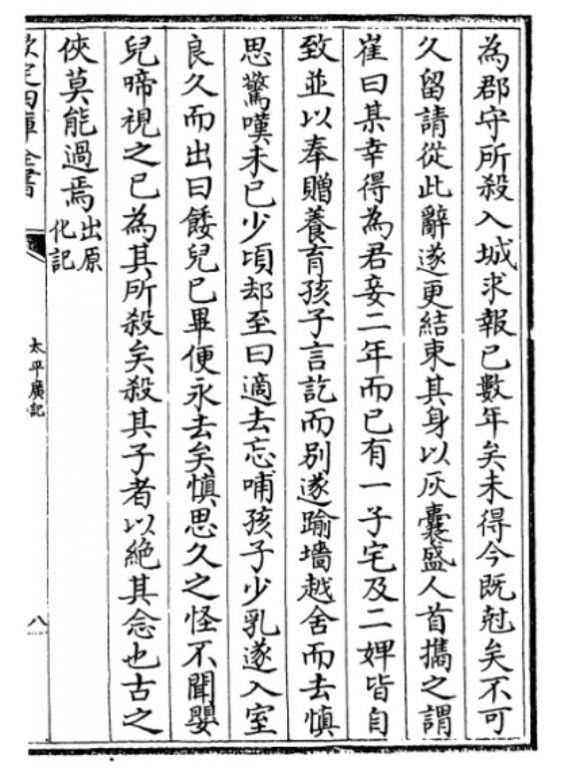 為郡守所殺入城求報已數年矣未得今既尅矣不可
久留請從此辭遂更結束其身以灰囊盛人首攜之謂
崔曰某幸得為君妾二年而已有一子宅及二婢皆自
致並以奉贈養育孩子言訖而別遂踰墻越舍而去慎
思驚嘆未已少頃却至曰適去忘哺孩子少乳遂入室
良久而出曰餧兒已畢便永去矣慎思久之怪不聞嬰
兒啼視之已為其所殺矣殺其子者以絕其念也古之
俠莫能過焉出原化記
欽定四庫全書
太平廣記
八